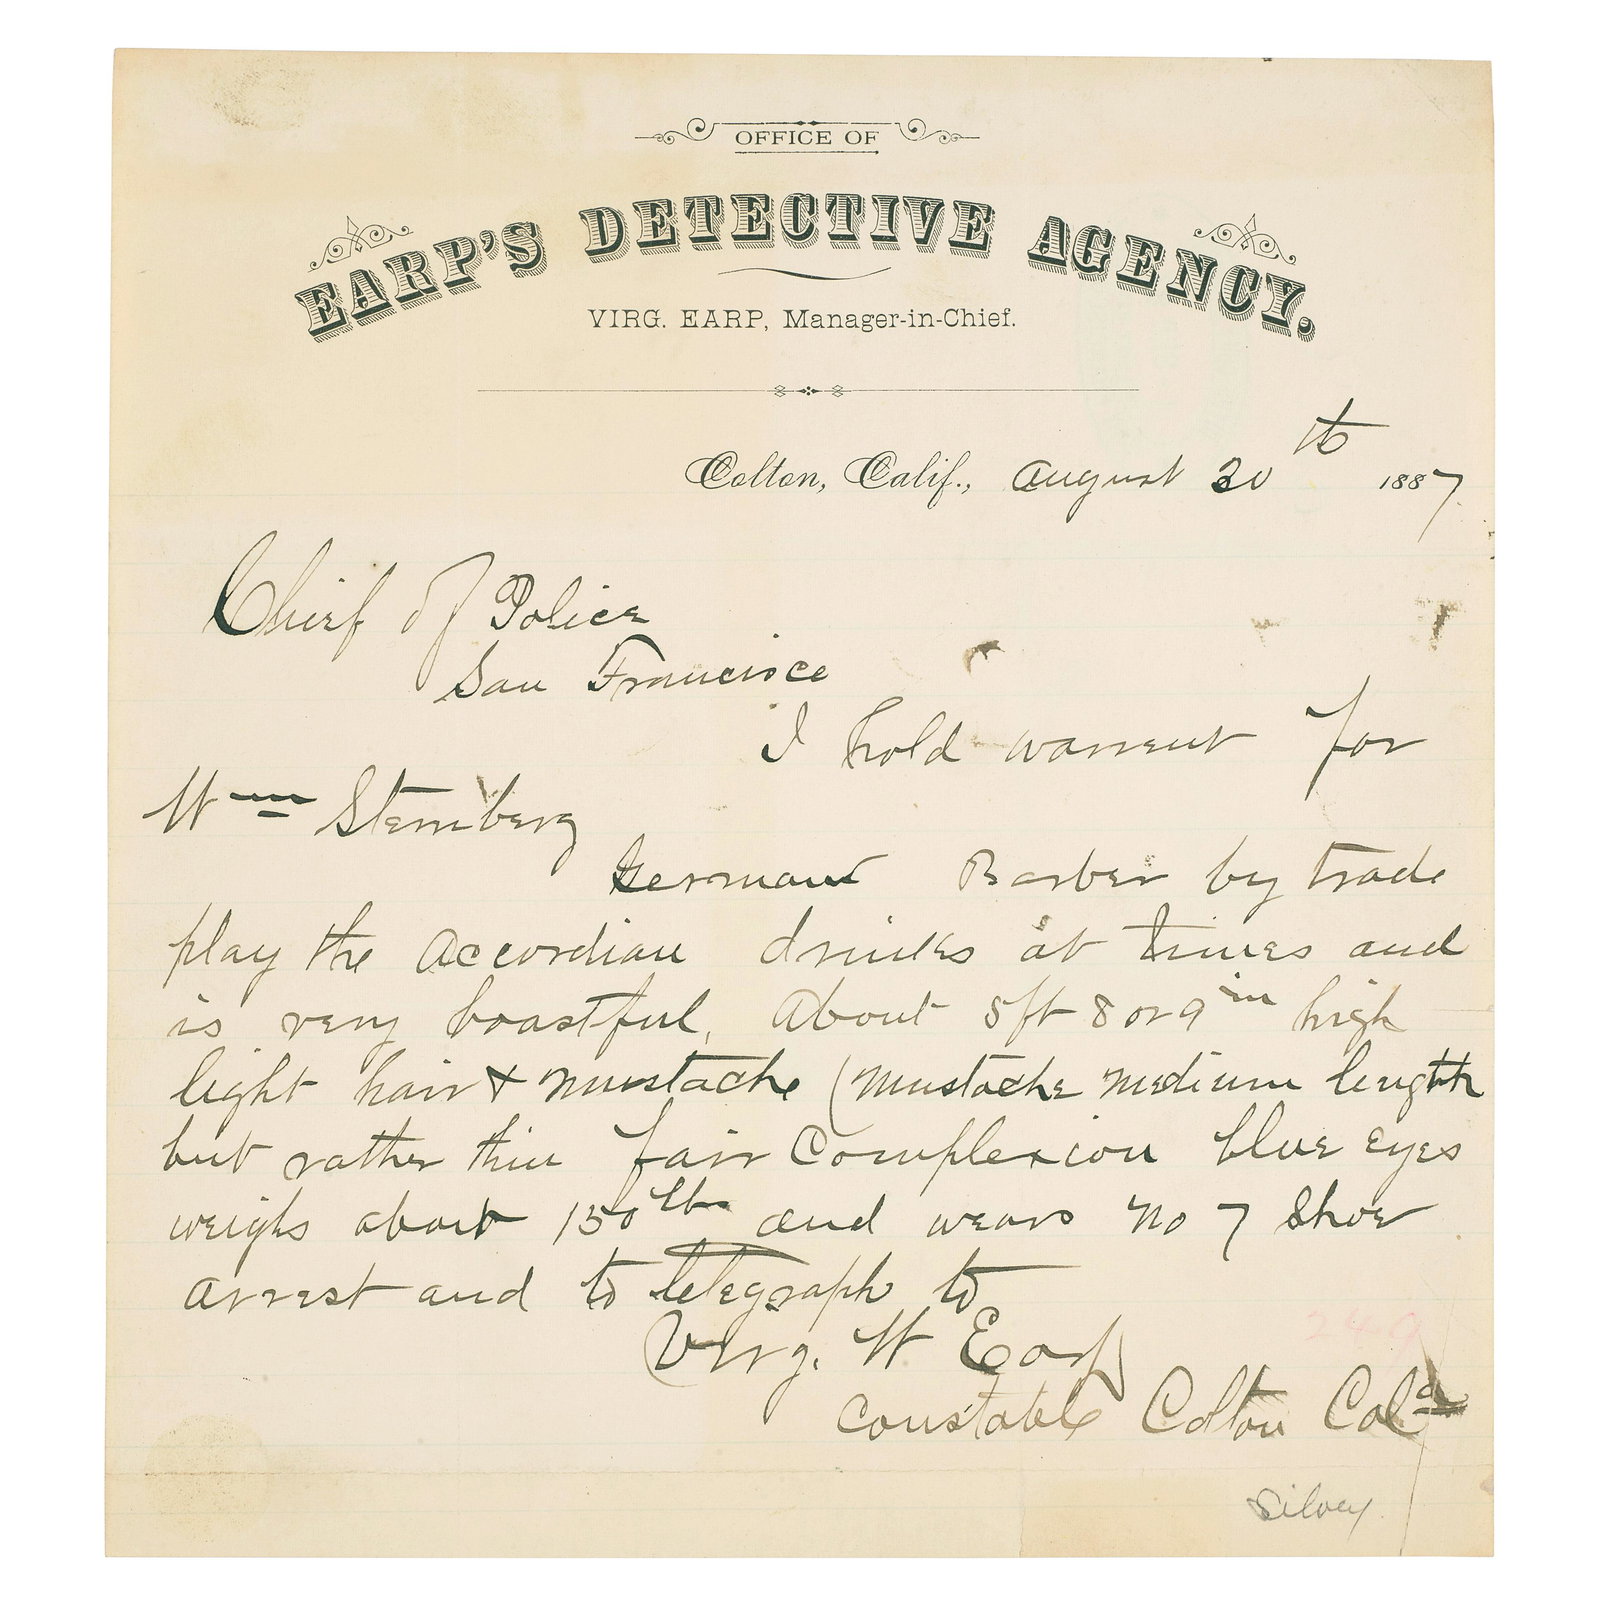 OFFICE OF
EARP'S DETECTIVE AGENCY,
VIRG. EARP, Manager-in-Chief.
Colton, Calif., August 30th 1887
Chief of Police
San Francisco
I hold warrent for
Wm Sternberg
German Barber by trade
play the Accordian drinks at times and
is very boastful, About 5ft 8 or 9 in high
light hair & mustache (mustache medium length
but rather thin fair Complexion blue eyes
weighs about 150 lbs and wears no 7 Shoe
arrest and to telegraph to
Virg. W Earp
Constable Colton Cala
249
Silvey